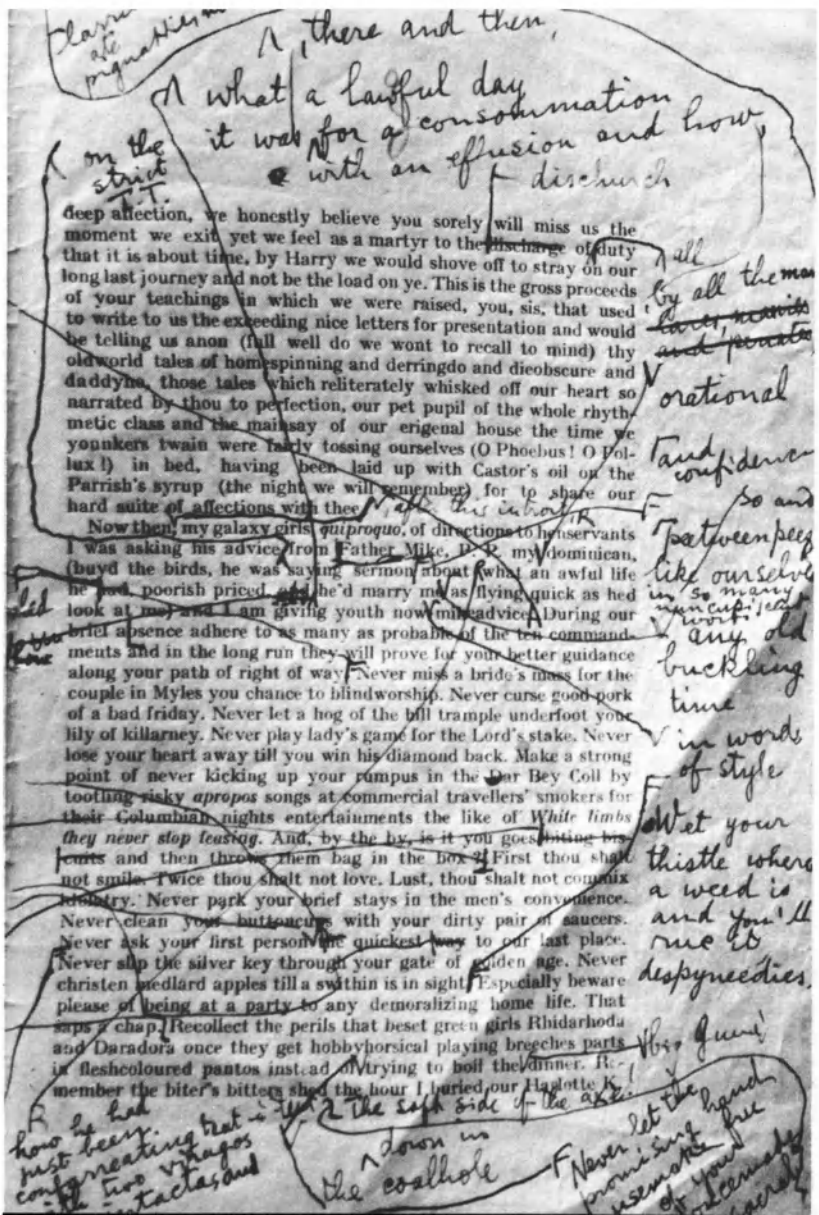 , there and then,
what a lawful day
it was for a consommation
with an effusion and how
on the
strict
T.T.
dischurch
deep affection, we honestly believe you sorely will miss us the
moment we exit yet we feel as a martyr to the discharge of duty
that it is about time, by Harry we would shove off to stray on our
long last journey and not be the load on ye. This is the gross proceeds
of your teachings in which we were raised, you, sis, that used
to write to us the exceeding nice letters for presentation and would
be telling us anon (full well do we wont to recall to mind) thy
oldworld tales of homespinning and derringdo and dieobscure and
daddyho, those tales which reliterately whisked off our heart so
narrated by thou to perfection, our pet pupil of the whole rhyth-
metic class and the mainsay of our erigenal house the time we
younkers twain were fairly tossing ourselves (O Phoebus! O Pol-
lux!) in bed, having been laid up with Castor's oil on the
Parrish's syrup (the night we will remember) for to share our
hard suite of affections with thee
, after this introit,
Now then, my galaxy girls, quiproquo, of directions to henservants
I was asking his advice from Father Mike, P. P. my dominican,
(buyd the birds, he was saying sermon about what an awful life
he had, poorish priced, he'd marry me as flying quick as hed
look at me) and I am giving youth now mis advice. During our
brief absence adhere to as many as probable of the ten command-
ments and in the long run they will prove for your better guidance
along your path of right of way. Never miss a bride's mass for the
couple in Myles you chance to blindworship. Never curse good pork
of a bad friday. Never let a hog of the bill trample underfoot your
lily of killarney. Never play lady's game for the Lord's stake. Never
lose your heart away till you win his diamond back. Make a strong
point of never kicking up your rumpus in the Dar Bey Coll by
tootling risky apropos songs at commercial travellers' smokers for
their Columbian nights entertainments the like of White limbs
they never stop teasing. And, by the by, is it you goes biting bis-
cuits and then throws them bag in the box? First thou shalt
not smile. Twice thou shalt not love. Lust, thou shalt not commix
idolatry. Never park your brief stays in the men's convenience.
Never clean your buttoncups with your dirty pair of saucers.
Never ask your first person the quickest way to our last place.
Never slip the silver key through your gate of golden age. Never
christen medlard apples till a swithin is in sight. Especially beware
please of being at a party to any demoralizing home life. That
saps a chap. Recollect the perils that beset green girls Rhidarhoda
and Daradora once they get hobbyhorsical playing breeches parts
in fleshcoloured pantos instead of trying to boil the dinner. Re-
member the biter's bitters shed the hour I buried our Haglotte K.
all
by all the
orational
and
confidence
so and
like ourselves
in so many
words
any old
buckling
time
in words
of style
Wet your
thistle where
a weed is
and you'll
rue it
despyneedies.
how he had
just been
confarreating
with two viragos
the soft side of the axe!
down in
the coalhole
Never let the
promising hand
usemake free
of your